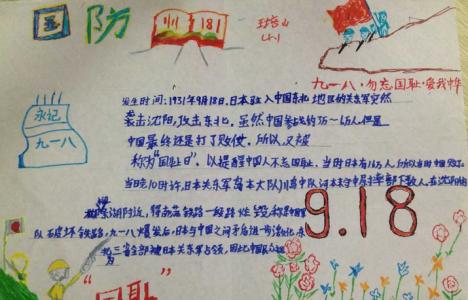 国防
九一八
培山
小
九一八·勿忘国耻·爱我中华
永记
九一八
发生时间:1931年9月18日,日本驻入中国东北地区的关东军突然
袭击沈阳,攻击东北,虽然中国参战约
中国最终还是打了败仗,所以,又被
称为"国耻日",以提醒中国人不忘国耻,当时日本有
当晚10时许,日本关东军岛本大队川岛中队河本末守中尉率部下数人,在沈阳
柳条湖附近,将南满铁路一段路炸毁
队破坏铁路,九一八爆发后,日本与中国之间矛盾进一步激化,东
北三省全部被日本关东军占领,因此
9.18
"国耻"